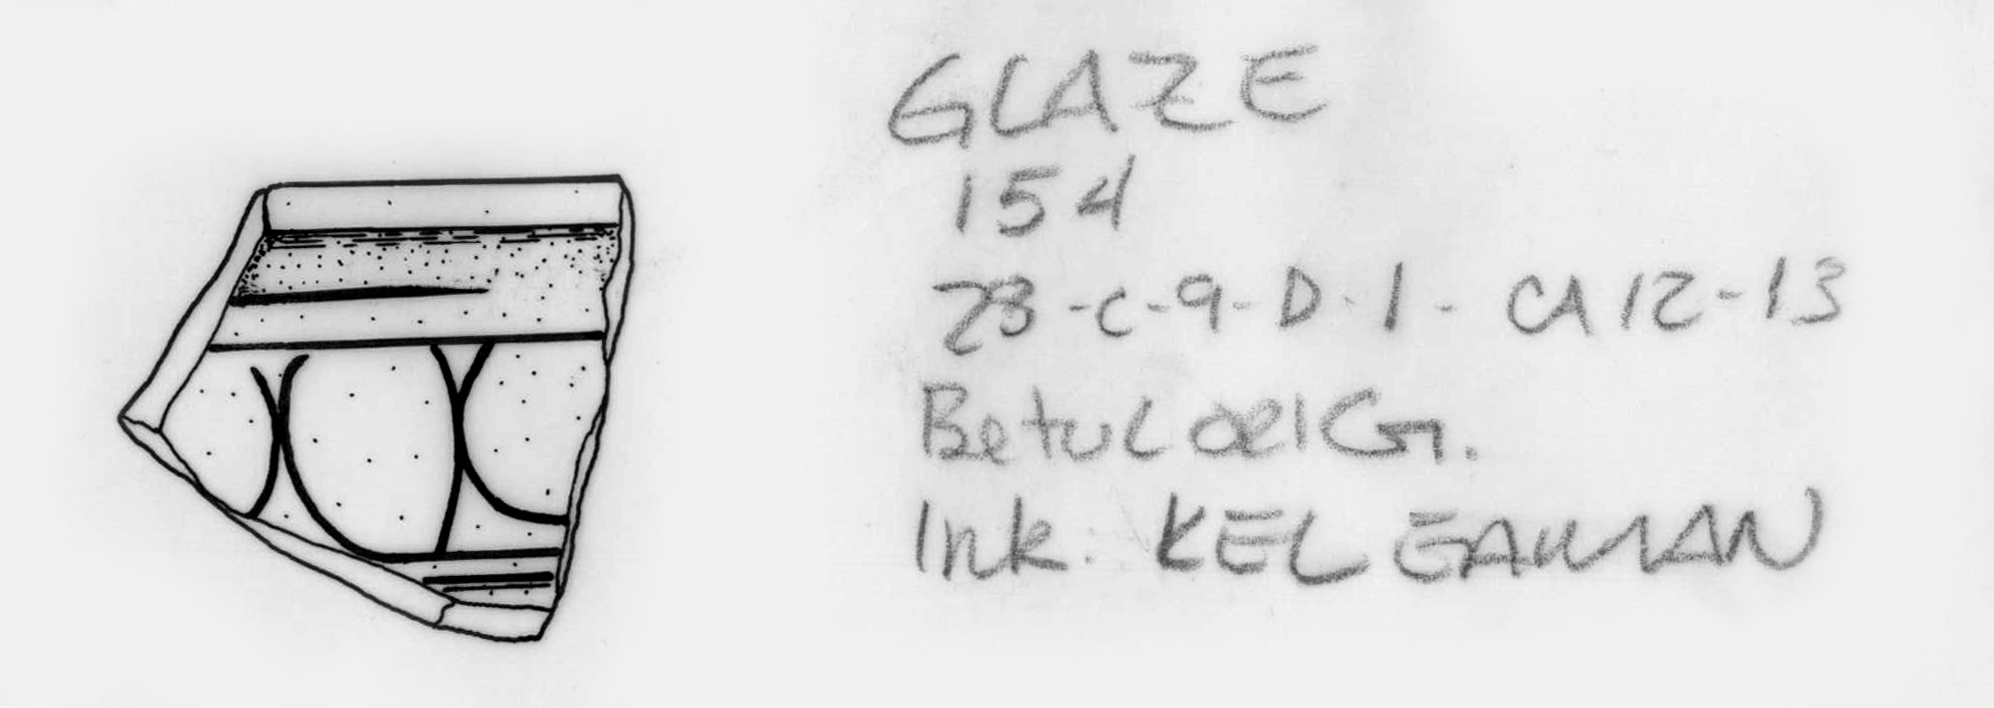 GLAZE
154
28-C-9-D-1- CA 12-13
Betul ORIG.
Ink. KEL